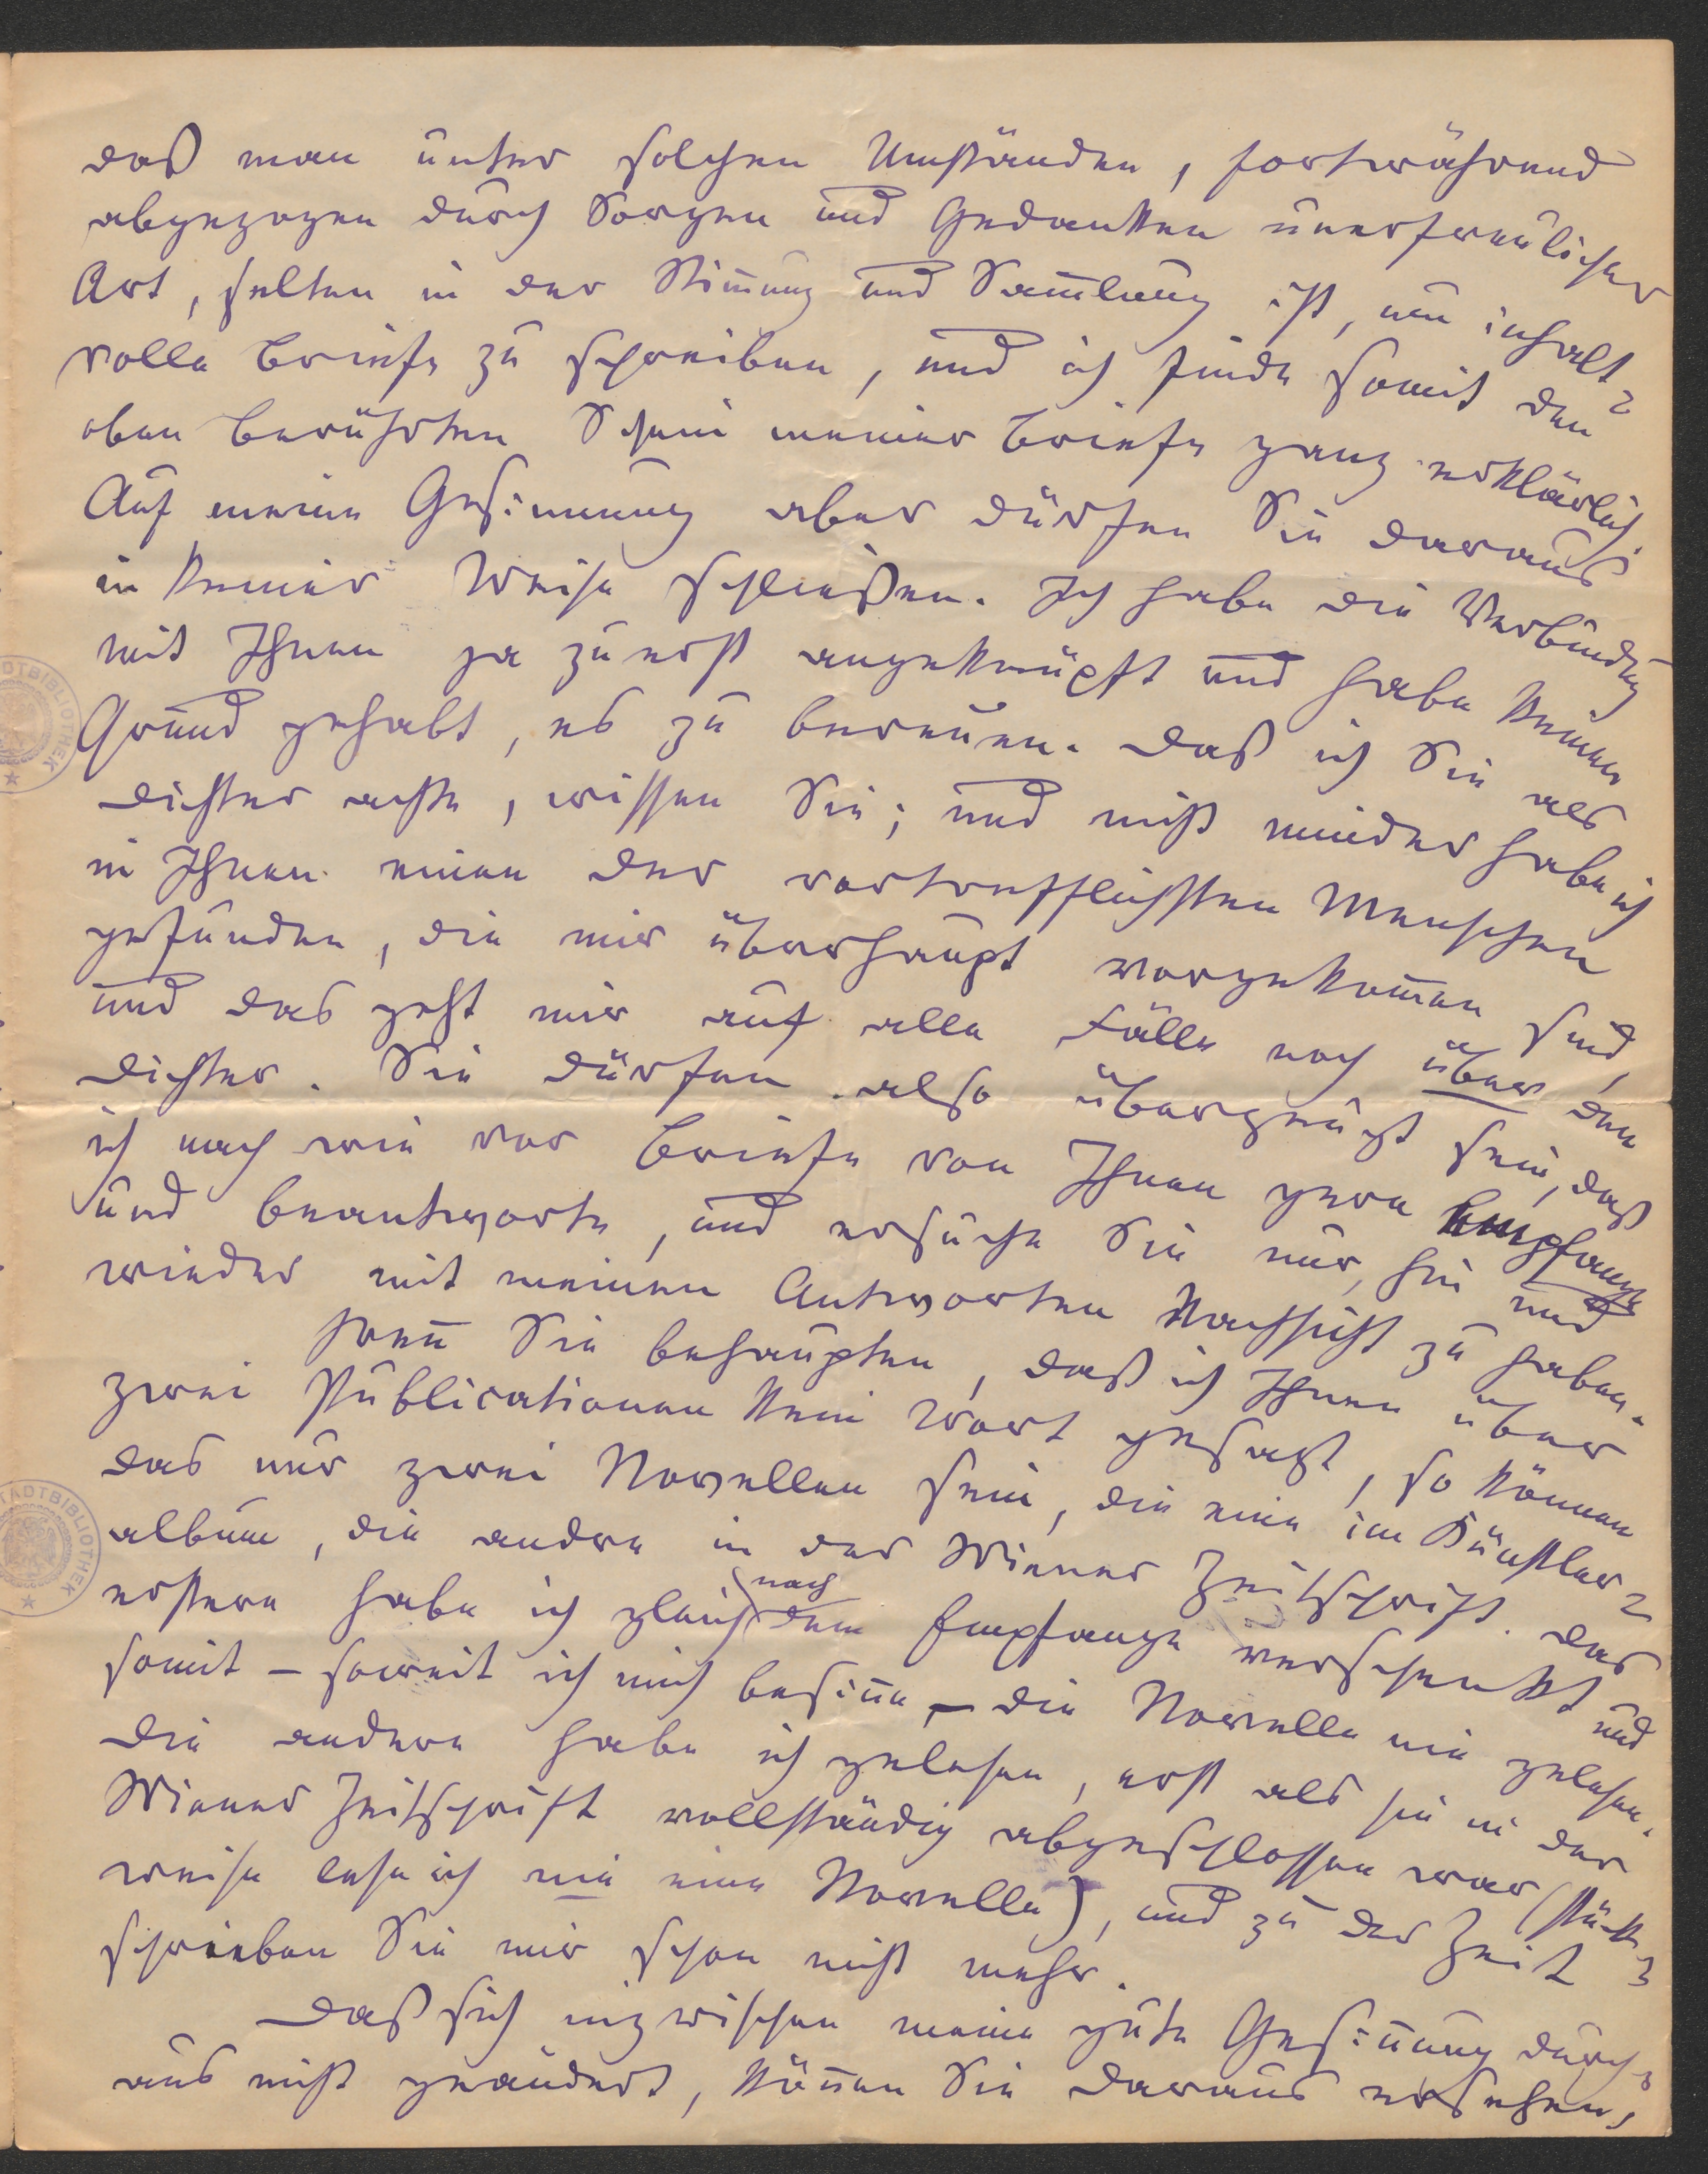 daß man unter solchen Umständen, fortwährend
abgezogen durch Sorgen und Gedanken unerfreulicher
Art, selten in der Stim̄ung und Sam̄lung ist, um inhalt-
volle Briefe zu schreiben, und ich finde somit den
oben berührten Schein meiner Briefe ganz erklärlich.
Auf meine Gesinnung aber dürfen Sie daraus
in keiner Weise schließen. Ich habe die Verbindung
mit Ihnen ja zuerst angeknüpft und habe keinen
Grund gehabt, es zu bereuen. Daß ich Sie als
Dichter achte, wissen Sie; und nicht minder habe ich
in Ihnen einen der vortrefflichsten Menschen
gefunden, die mir überhaupt vorgekom̄en sind,
und das geht mir auf alle Fälle noch über den
Dichter. Sie dürfen also überzeugt sein, daß
ich nach wie vor Briefe von Ihnen gern empfange
und beantworte, und ersuche Sie nur, hin und
wieder mit meinen Antworten Nachsicht zu haben.
Wen̄ Sie behaupten, daß ich Ihnen über
zwei Publicationen kein Wort gesagt, so können
das nur zwei Novellen sein, die eine im Künstler-
album, die andre in der Wiener Zeitschrift. Das
erstere habe ich gleich nach dem Empfange verschenkt und
somit – soweit ich mich besin̄e – die Novelle nie gelesen.
Die andere habe ich gelesen, erst als sie in der
Wiener Zeitschrift vollständig abgeschlossen war (stück-
weise lese ich nie eine Novelle), und zu der Zeit
schrieben Sie mir schon nicht mehr.
Daß sich inzwischen meine gute Gesin̄ung durch-
aus nicht geändert, kön̄en Sie daraus ersehen,
STADTBIBLIOTHEK
STADTBIBLIOTHEK